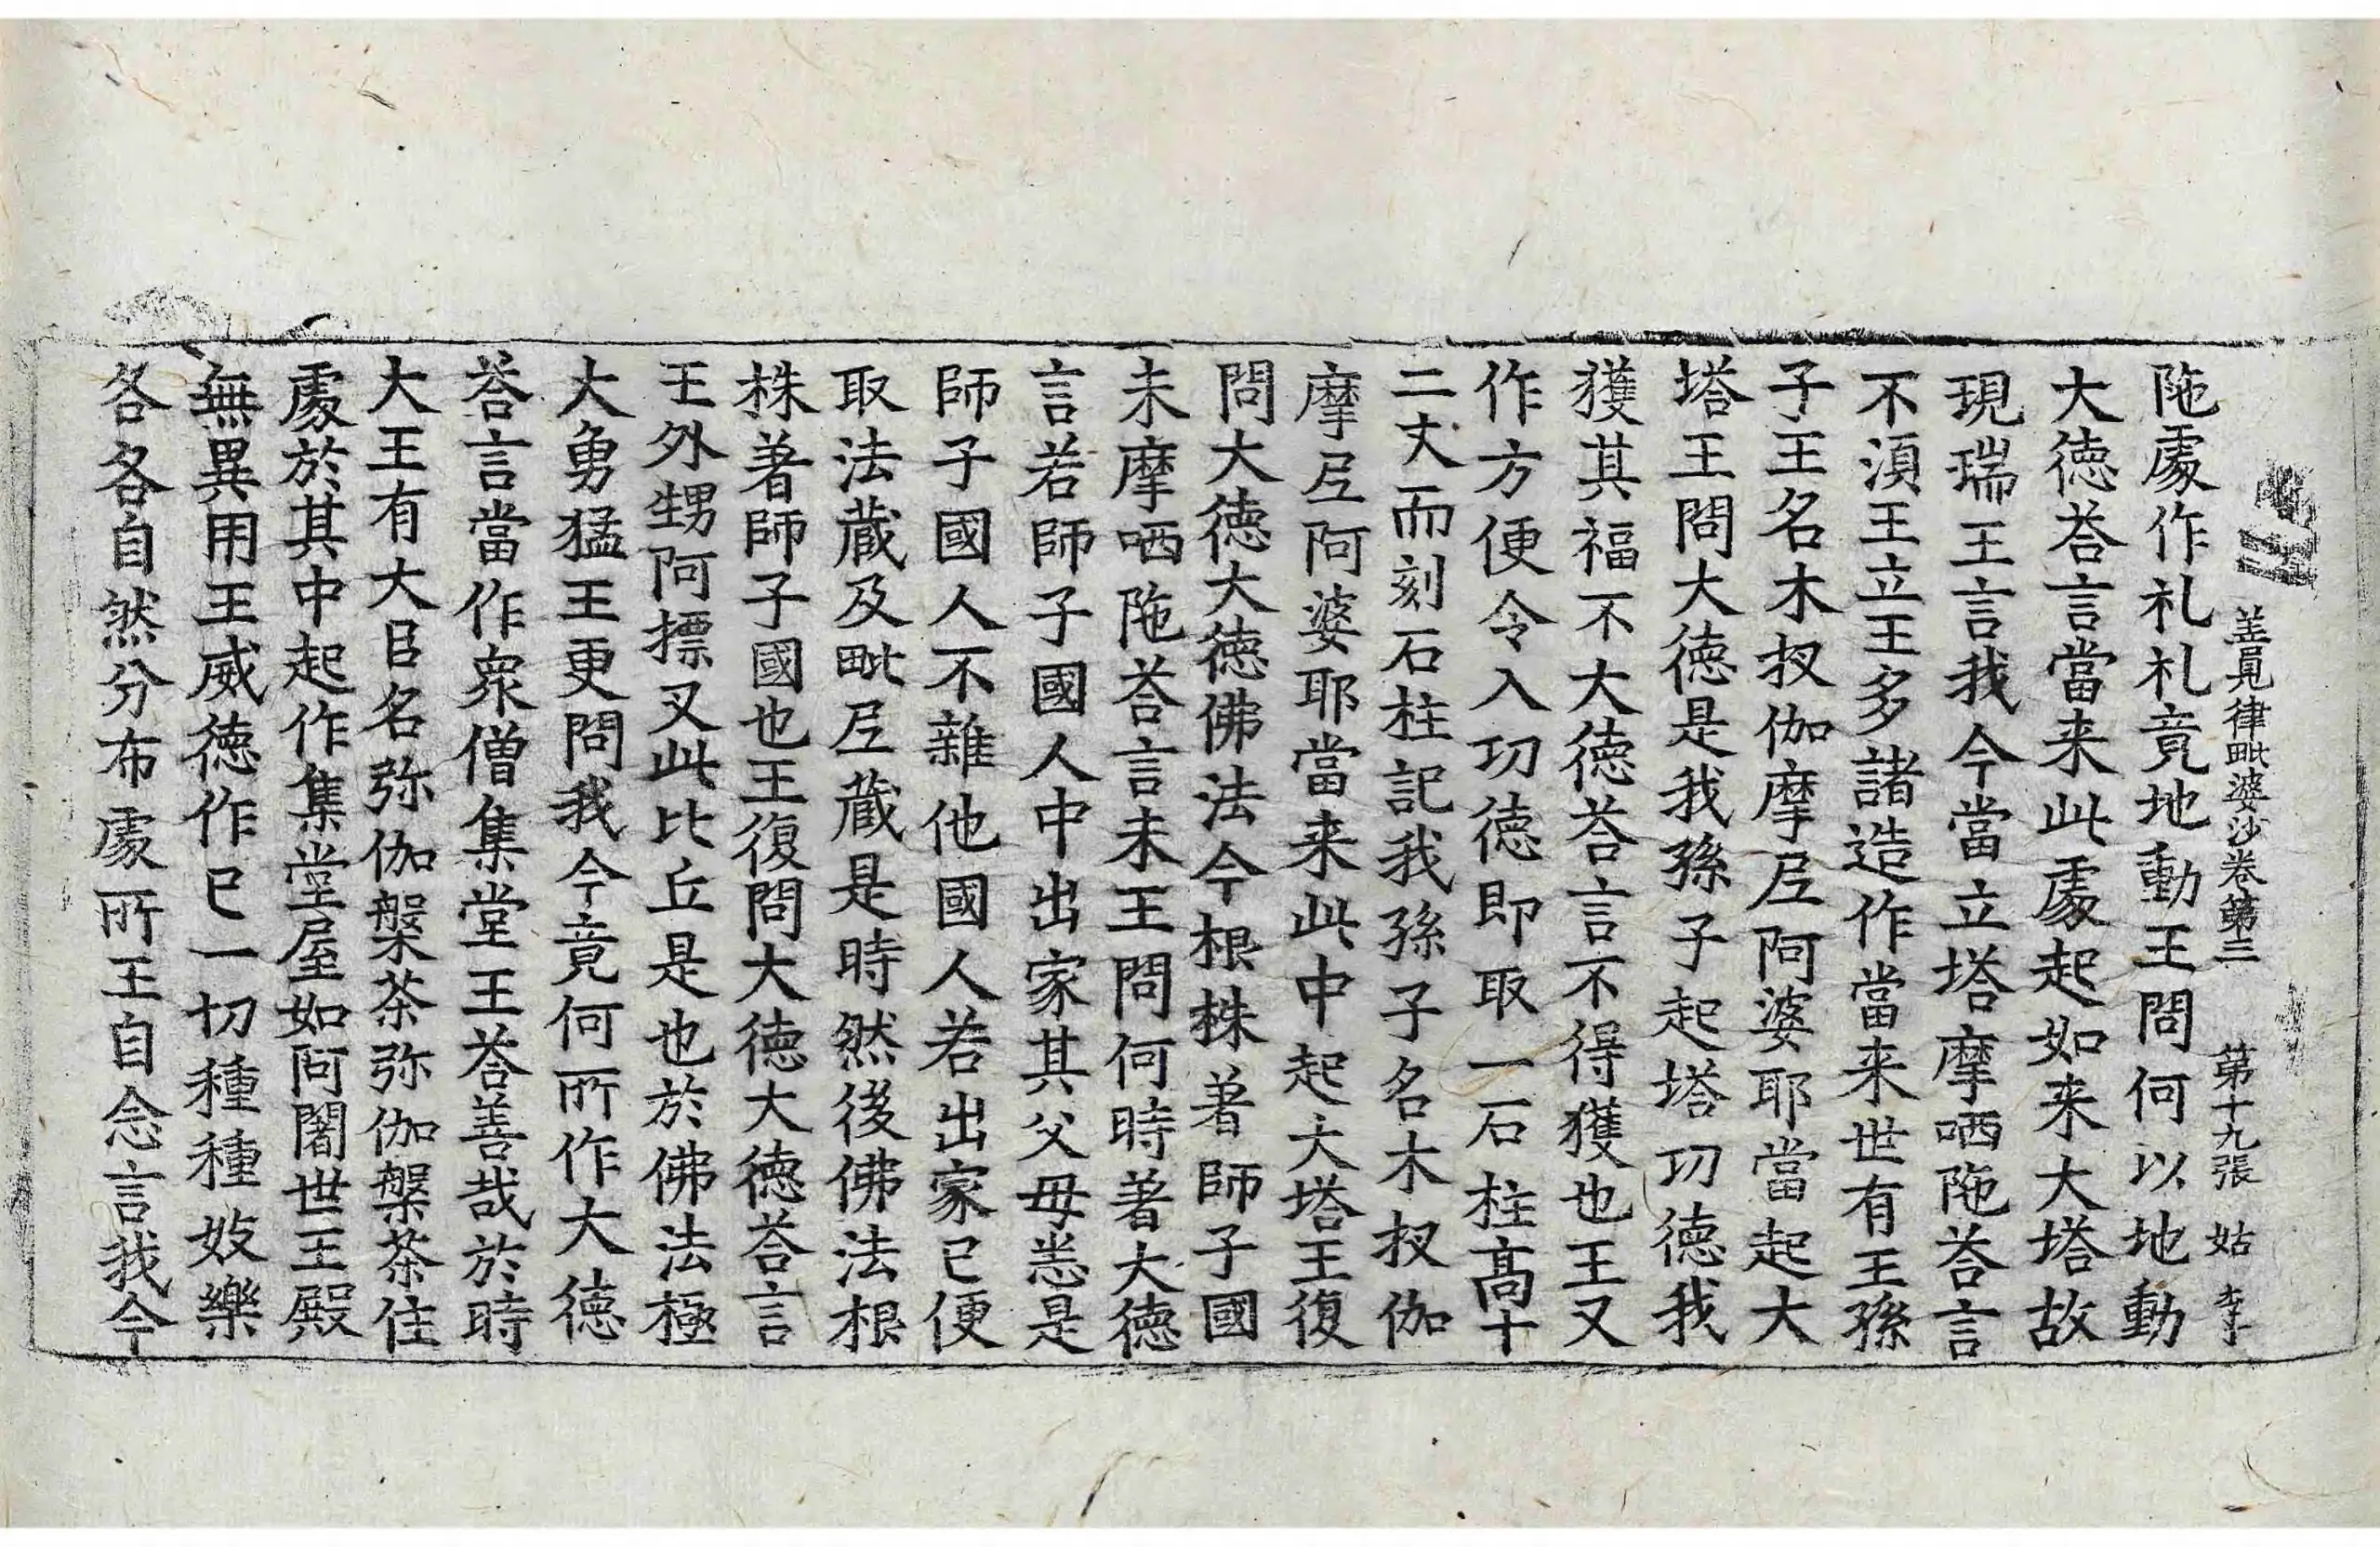 善見律毗婆沙卷第三 第十九張 姑 李
陁處作礼礼竟地動王問何以地動
大德荅言當来此處起如来大塔故
現瑞王言我今當立塔摩哂陁荅言
不湏王立王多諸造作當来世有王孫
子王名木杈伽摩尼阿婆耶當起大
塔王問大德是我孫子起塔功德我
獲其福不大德荅言不得獲也王又
作方便令入功德即取一石柱高十
二丈而刻石柱記我孫子名木杈伽
摩尼阿婆耶當来此中起大塔王復
問大德大德佛法今根株著師子國
未摩哂陁荅言未王問何時著大德
言若師子國人中出家其父母悉是
師子國人不雜他國人若出家已便
取法藏及毗尼藏是時然後佛法根
株著師子國也王復問大德大德荅言
王外甥阿摽叉此比丘是也於佛法極
大勇猛王更問我今竟何所作大德
荅言當作衆僧集堂王荅善哉於時
大王有大臣名弥伽槃茶弥伽槃茶住
處於其中起作集堂屋如阿闍世王殿
無異用王威德作已一切種種妓樂
各各自然分布處所王自念言我今